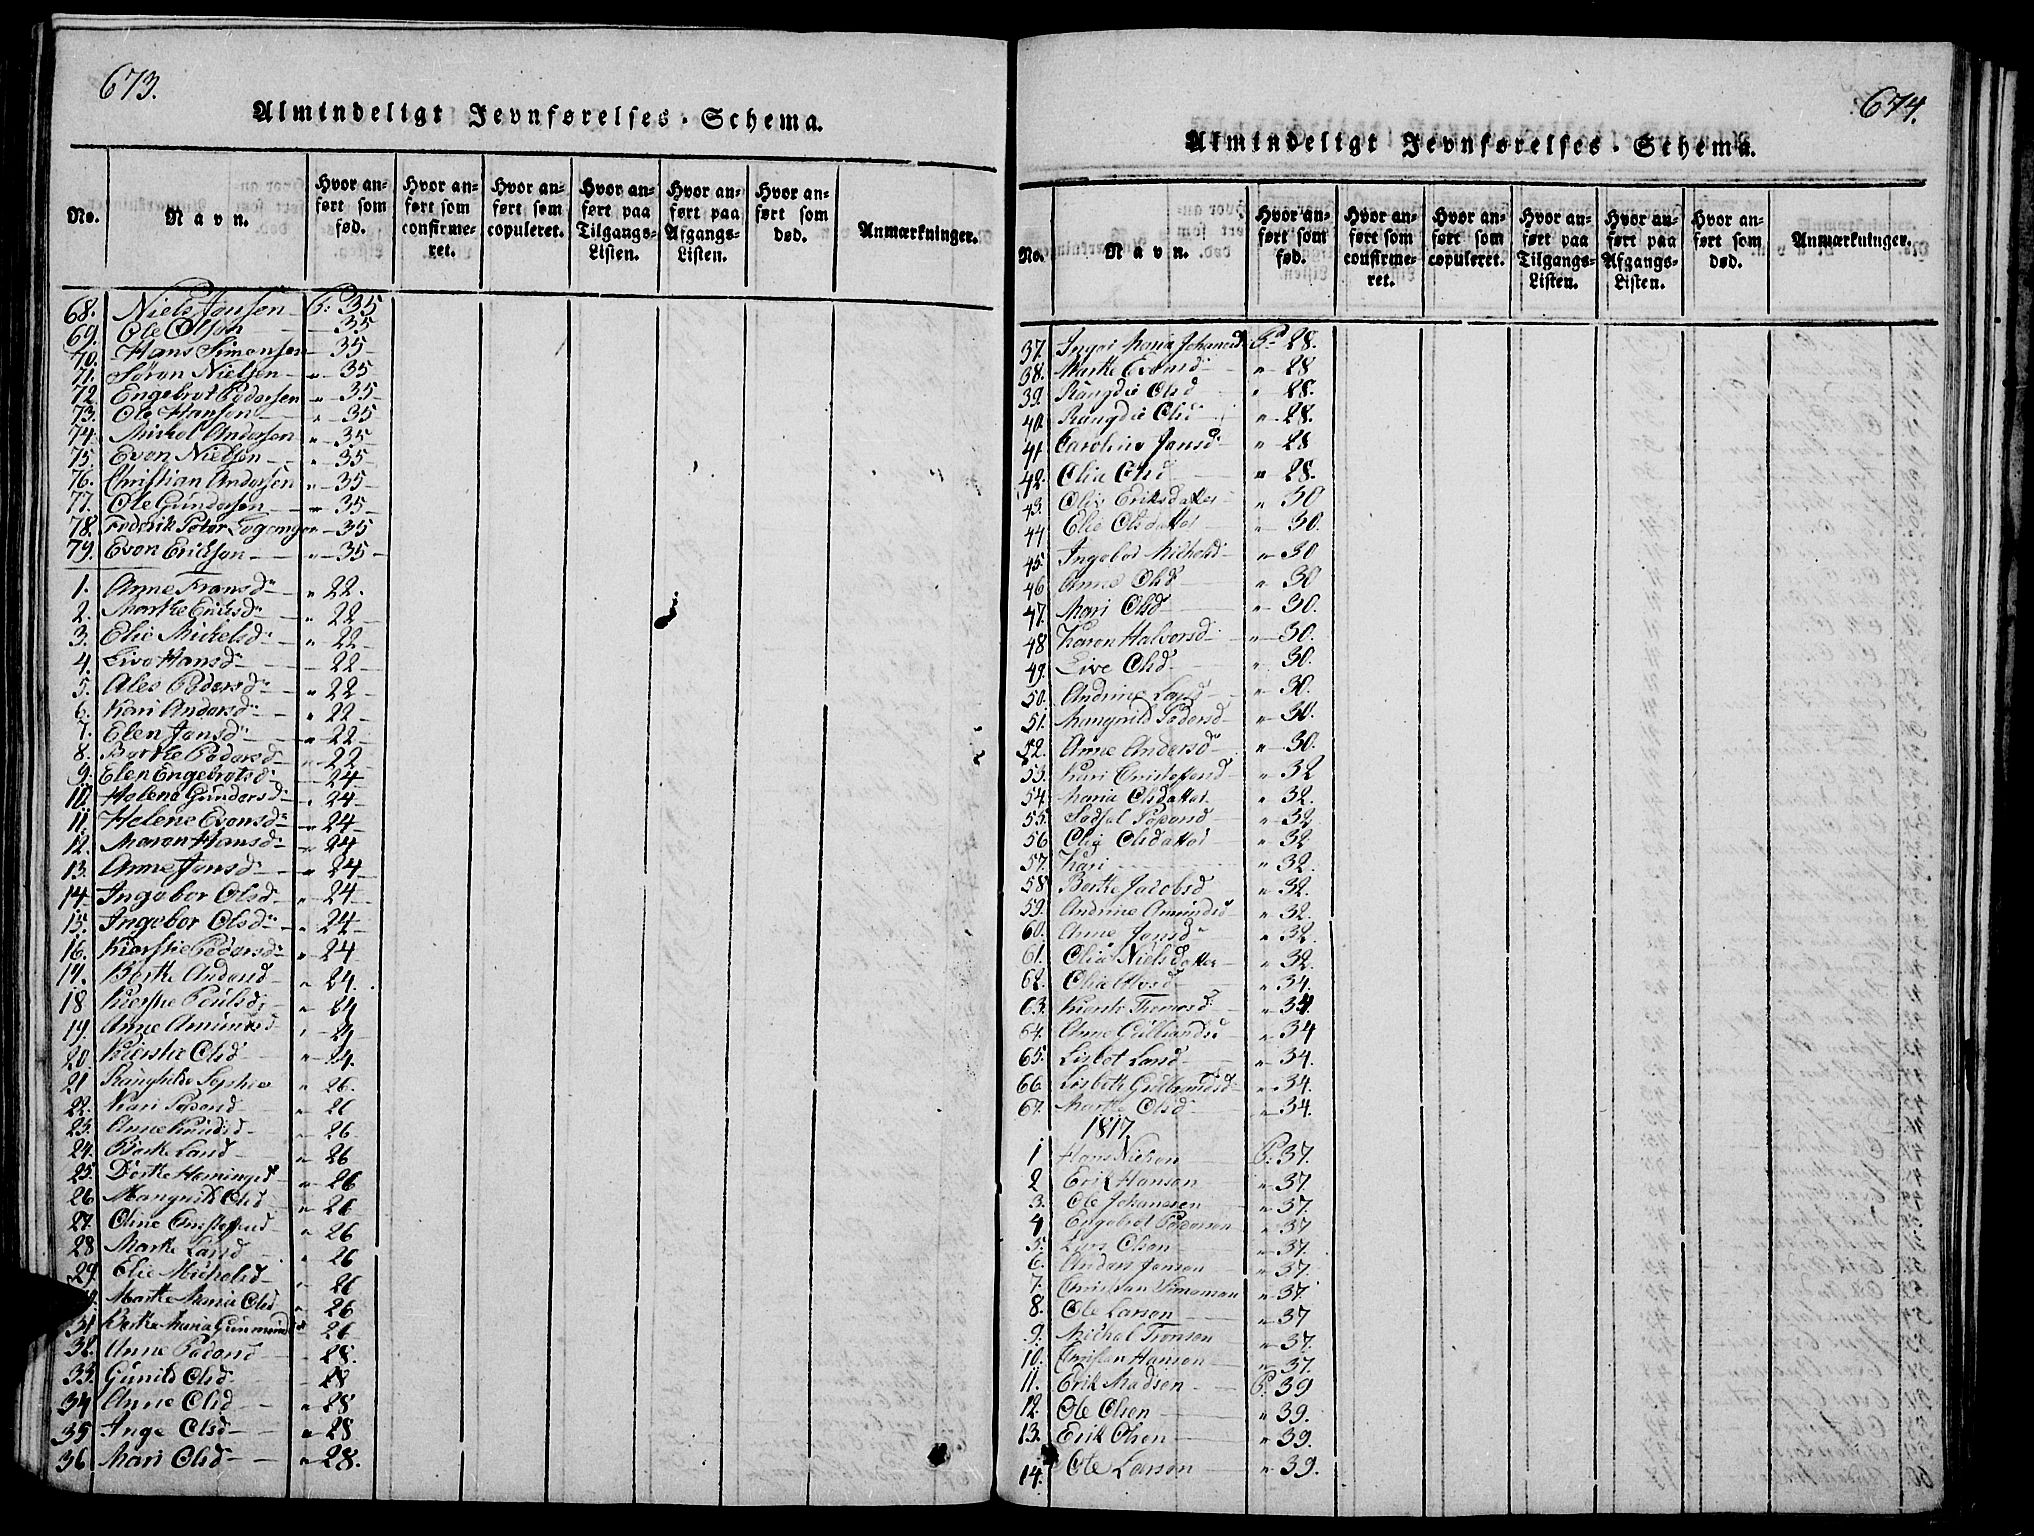 673.
Almindeligt Jevnførelses-Schema.
No.
Navn.
Hvor anført som fød.
Hvor anført som confirmeret.
Hvor anført som copuleret.
Hvor anført paa Tilgangs-Listen.
Hvor anført paa Afgangs-Listen.
Hvor anført som død.
Anmærkninger.
68. Niels Jonsen P: 35
69. Ole Olson 35
70. Hans Simonsen 35
71. Søren Nielsen „ 35
72. Engebret Pedersen „ 35
73. Ole Hansen „ 35
74. Mickel Andersen „ 35
75. Even Nielsen „ 35
76. Christian Andersen „ 35
77. Ole Gundersen „ 35
78. Frederik Peter 35
79. Even Erickson „ 35
1. Anne Fransd „ 22.
2. Marthe Ericksd „ 22
3. Elie Mickelsd „ 22
4. Live Hansd 22
5. Ales Pedersd „ 22
6. Kari Andersd „ 22
7. Elen Jansd „ 22
8. Berthe Pedersd „ 22
9. Elen Engebretsd 24
10. Helene Gundersd „ 24
11. Helene Evensd „ 24
12. Maren Hansd „ 24
13. Anne Jensd „ 24
14 Ingebor Olsd „ 24
15. Ingebor Olsd „ 24
16. Kierstie Pedersd „ 24
17. Berthe Andersd „ 24.
18 Kierstie Poulsd „ 24
19. Anne Amundsd „ 24
20. Kierstie Olsd „ 24.
21 Rangnilde Sophie „ 26.
22. Kari „ 26
23. Anne Knudsd „ 26.
24. Berthe Larsd „ 26
25. Dorthe Hemingsd „ 26
26 Mangnild Olsd „ 26
27. Oline Christophersd „ 26
28 Marthe Larsd „ 26
29. Elie Michelsd „ 26
Marthe Maria Olsd „ 26
31 Berthe Maria Gunmunds „ 26
32. Anne Pedersd 28.
33. Gunild Olsd 28
34 Anne Olsd „ 28
35 Inge Olsd „ 28
36 Mari Olsd „ 28.
674.
Almindeligt Jevnførelses-Schema.
No.
Navn.
Hvor anført som fød.
Hvor anført som confirmeret.
Hvor anført som copuleret.
Hvor anført paa Tilgangs-Listen.
Hvor anført paa Afgangs-Listen.
Hvor anført som død.
Anmærkninger.
37. Ingri Maria Johansd P. 28.
38. Marthe Evensd „ 28
39. Rangdie Olsd „ 28.
40. Rangdie Olsd „ 28.
41 Caroline Jansd „ 28
42. Olia Olsd „ 28.
43. Olia Eriksdatter „ 30
44 Elie Olsdatter „ 30.
45. Ingebor Michelsd „ 30
46 Anne Olsd „ 30
47. Mari Olsd „ 30.
48 Karen Halvorsd „ 30.
49. Live Olsd „ 30.
50. Andrine Larsd „ 30.
51. Mangnild Pedersd „ 30.
52. Anne Andersd „ 30.
53. Kari Christophersd „ 32
54. Maria Olsdatter „ 32.
55. „ 32
56 Olia Olsdatter „ 32
57. Kari „ 32.
58 Berthe Jacobsd „ 32.
59. Andrine Amundsd „ 32.
60. Anne Jansd „ 32.
61. Olia Nielsdatter „ 32.
62. Olia „ 34.
63. Thomesd „ 34.
64. Anne „ 34
65. Lisbet Larsd „ 34.
66 Lisbeth Gulbrandsd „ 34.
67. Marthe Olsd „ 34.
1817.
1 Hans Nielsen P. 37.
2 Erik Hansen „ 37.
3. Ole Johansen „ 37.
4 Engebret Pedersen „ 37
5. Lars Olsen „ 37.
6. Anders Jansen „ 37.
7. Christian Simonsen „ 37.
8. Ole Larsen „ 37
9. Michel Tronsen „ 37.
10. Christian Hansen „ 37.
11. Erik Madsen P. 39
12. Ole Olsen „ 39.
13. Erik Olsen „ 39.
14. Ole Larsen „ 39.